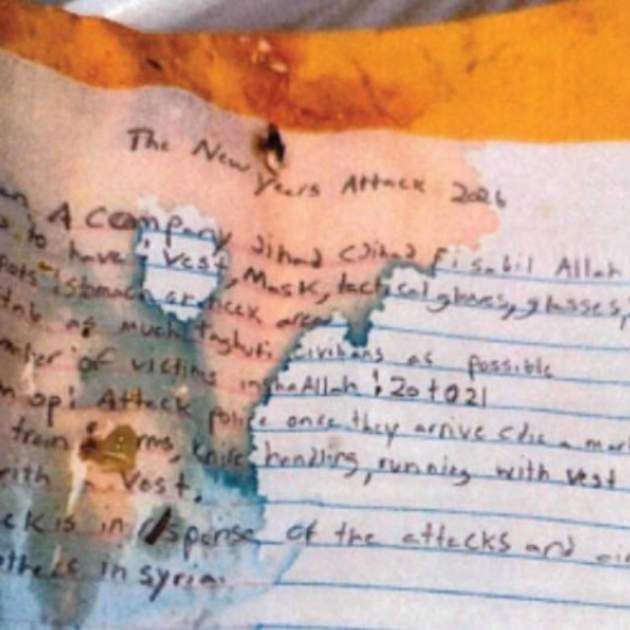 The New Years Attack 2026
A company Jihad (Jihad fi sabil Allah
to have : Vest, Mask, tactical gloves, glasses,
stomach or neck area
as much taghuti civilians as possible
of victims inshaAllah : 20 to 21
op: Attack police once they arrive (die a
train, knife handling, running with vest
Vest.
is in response of the attacks and
in Syria.